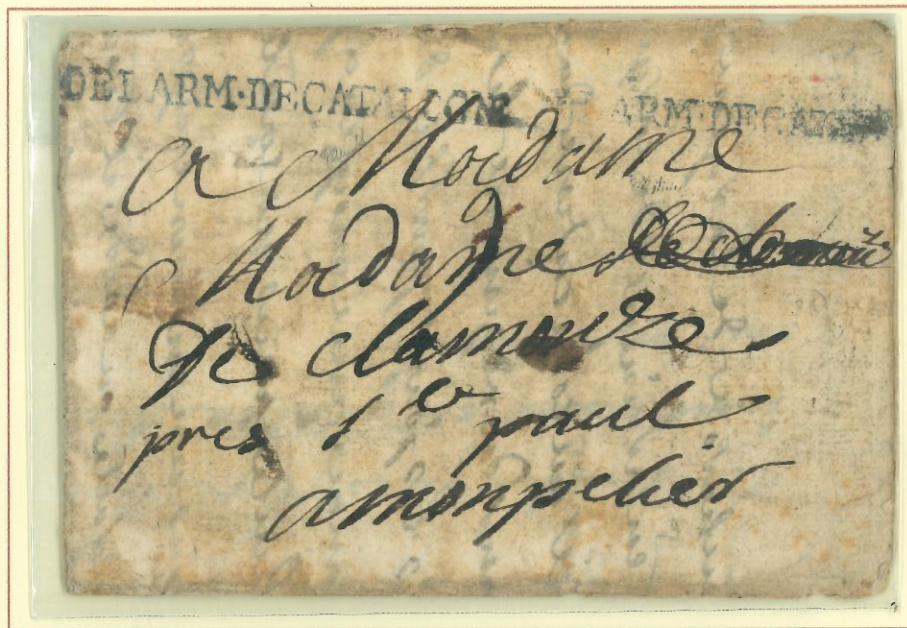 DELARM·DECATALOGNE ARM·DECAT
A Madame
Madame
De clamouze
pres st paul
amonpelier